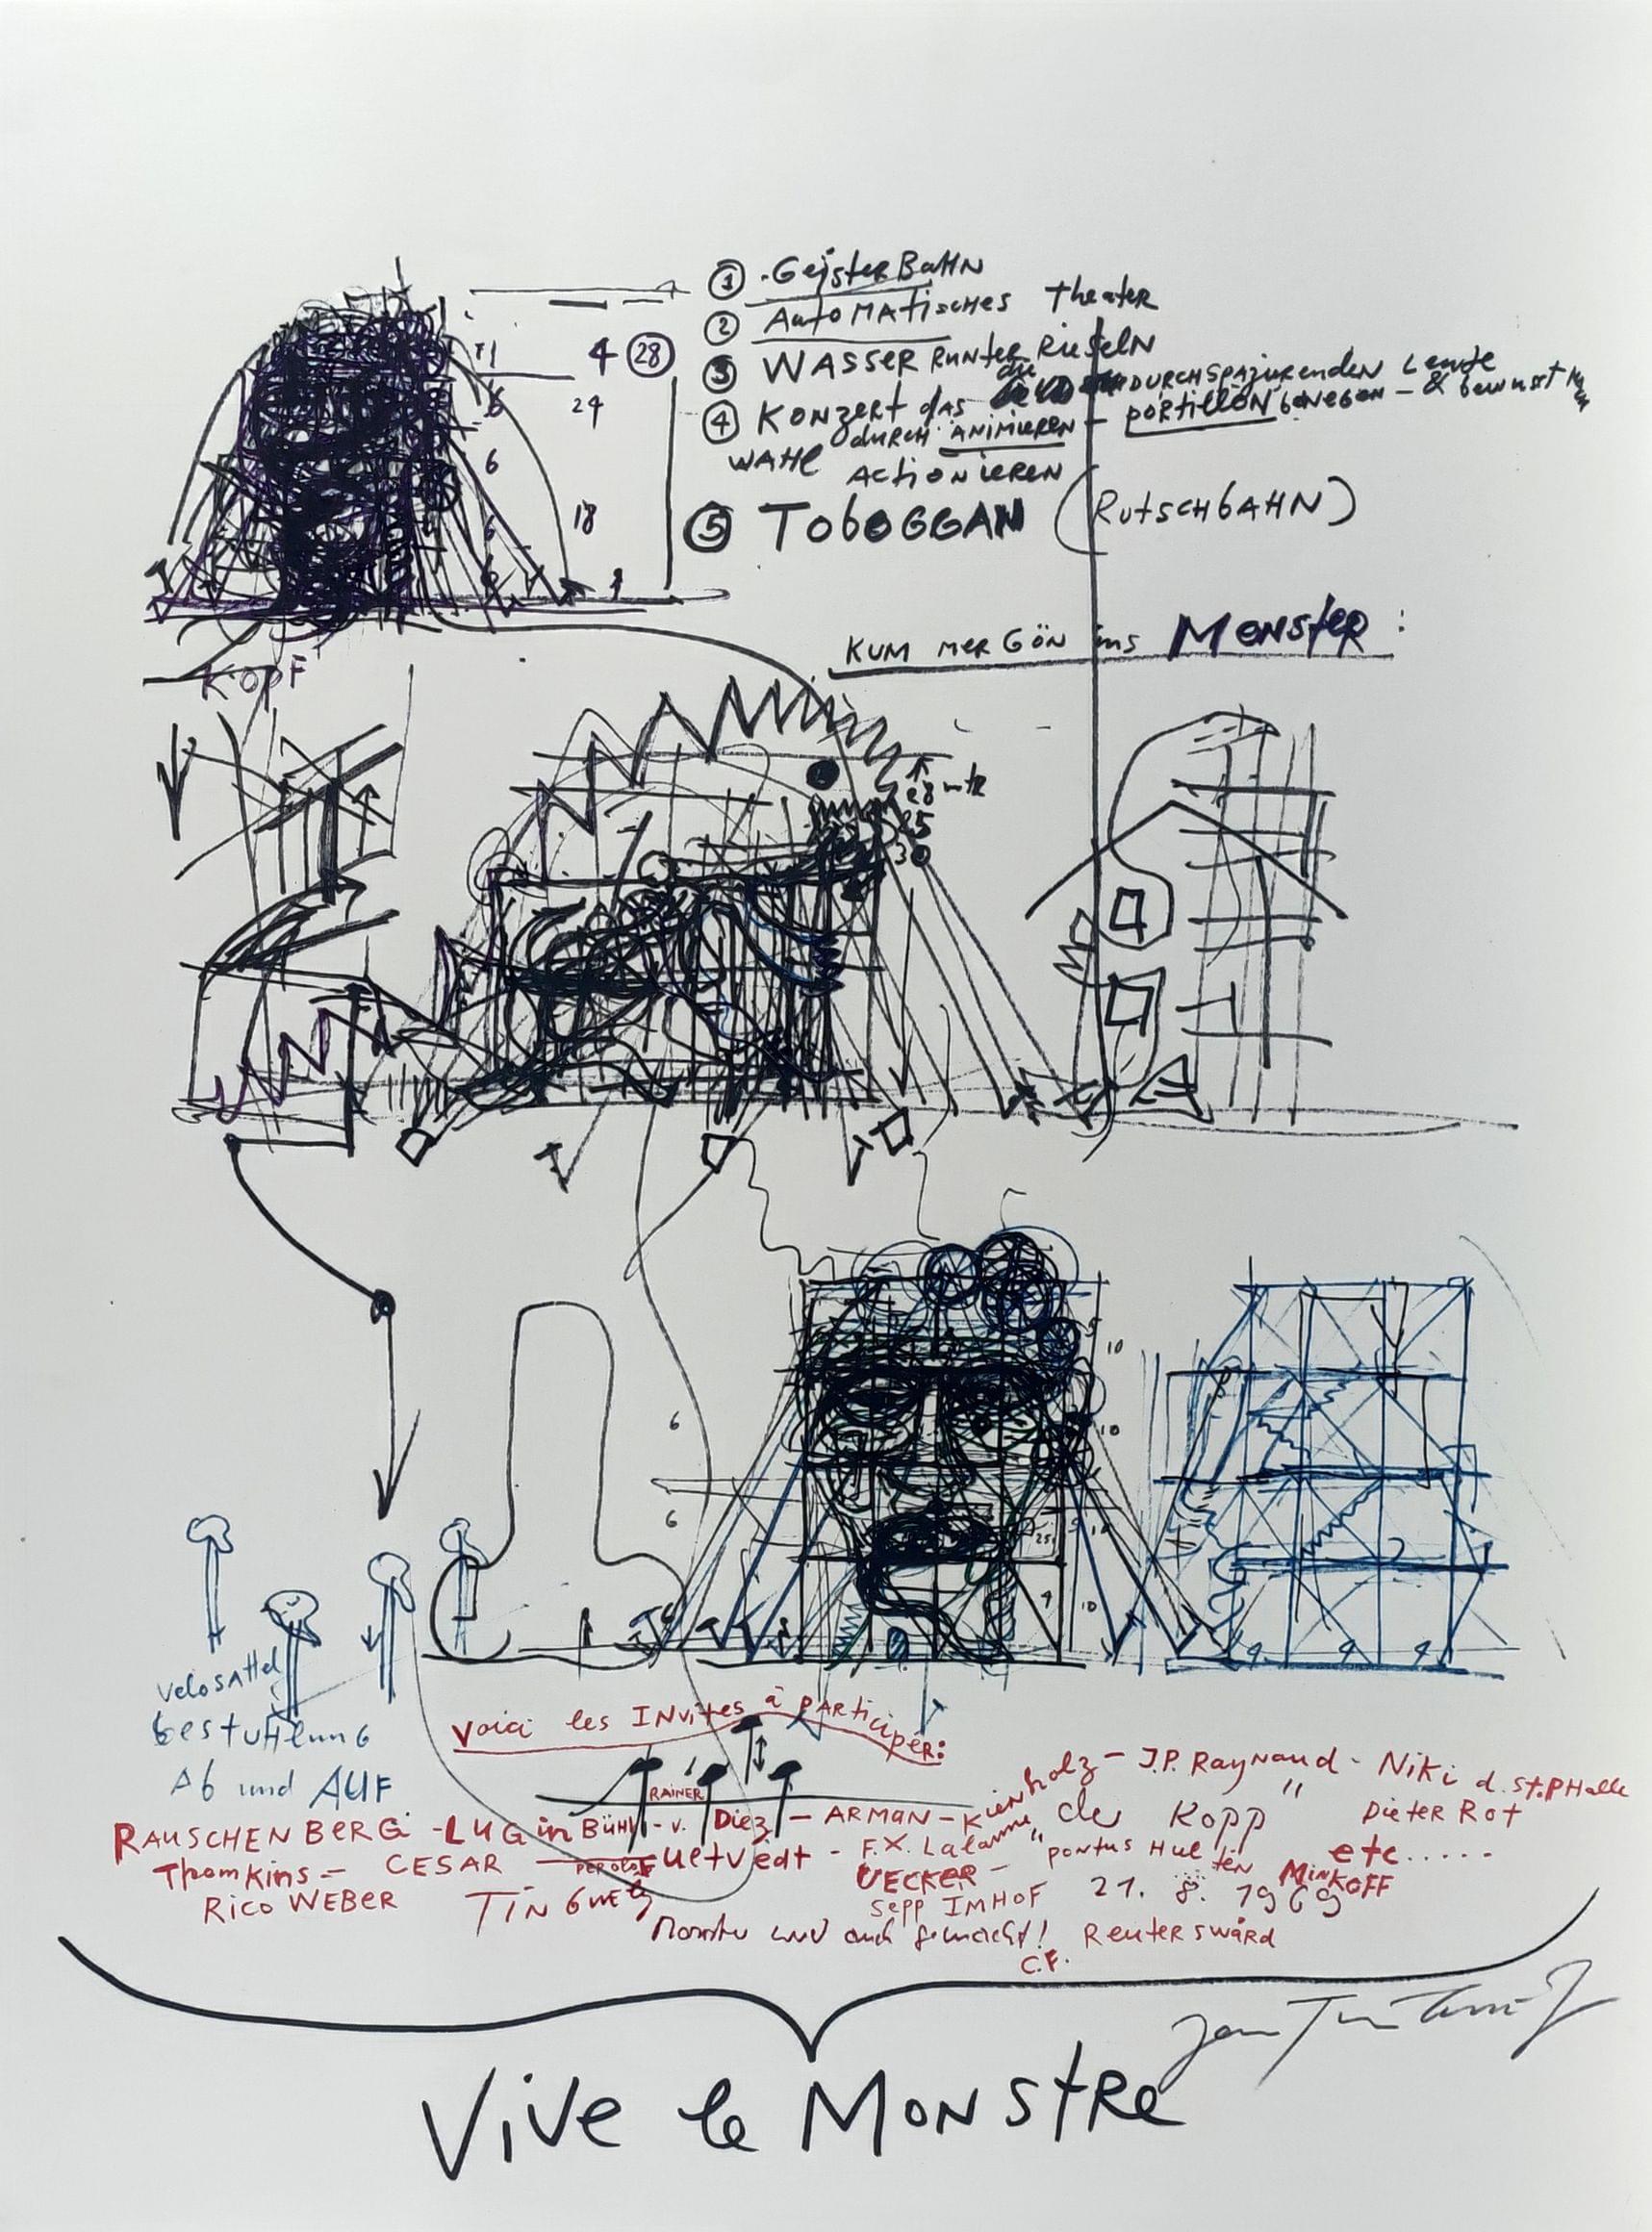 ① GeisterBAHN
② AutoMAtiscHes Theater
③ WASSER RUNTER RieselN
4 ㉘
④ KONZERT dAS die DURCHSPAZIERENDEN Leute
durch ANIMIEREN - & bewusst
WAHL ACTIONIEREN
⑤ TOBOGGAN (RutscHbAHN)
1
6
24
6
18
6
KUM MER GÖN ins MONSTER:
KOPF
28 mtr
25
3
10
6
10
6
25
10
4
10
4 4 4
Velosattel
bestuhlung
Ab und AUF
Voici les INvites à PARticiper:
RAINER
RAUSCHENBERG - LUGinBÜHL - v. Diez - ARMAN - Kienholz - J.P. Raynaud - Niki d. St.PHalle
"der Kopp" Dieter Rot
Thomkins - CESAR - PEROLOF Ultvedt - F.X. Lalanne "pontus Hulten etc.....
RICO WEBER TINGuely UECKER - MINKOFF
Sepp IMHOF 21. 8. 1969
Monster wird auch gemacht! Reuterswärd
C.F.
Jean Tinguely
Vive le MONSTRE